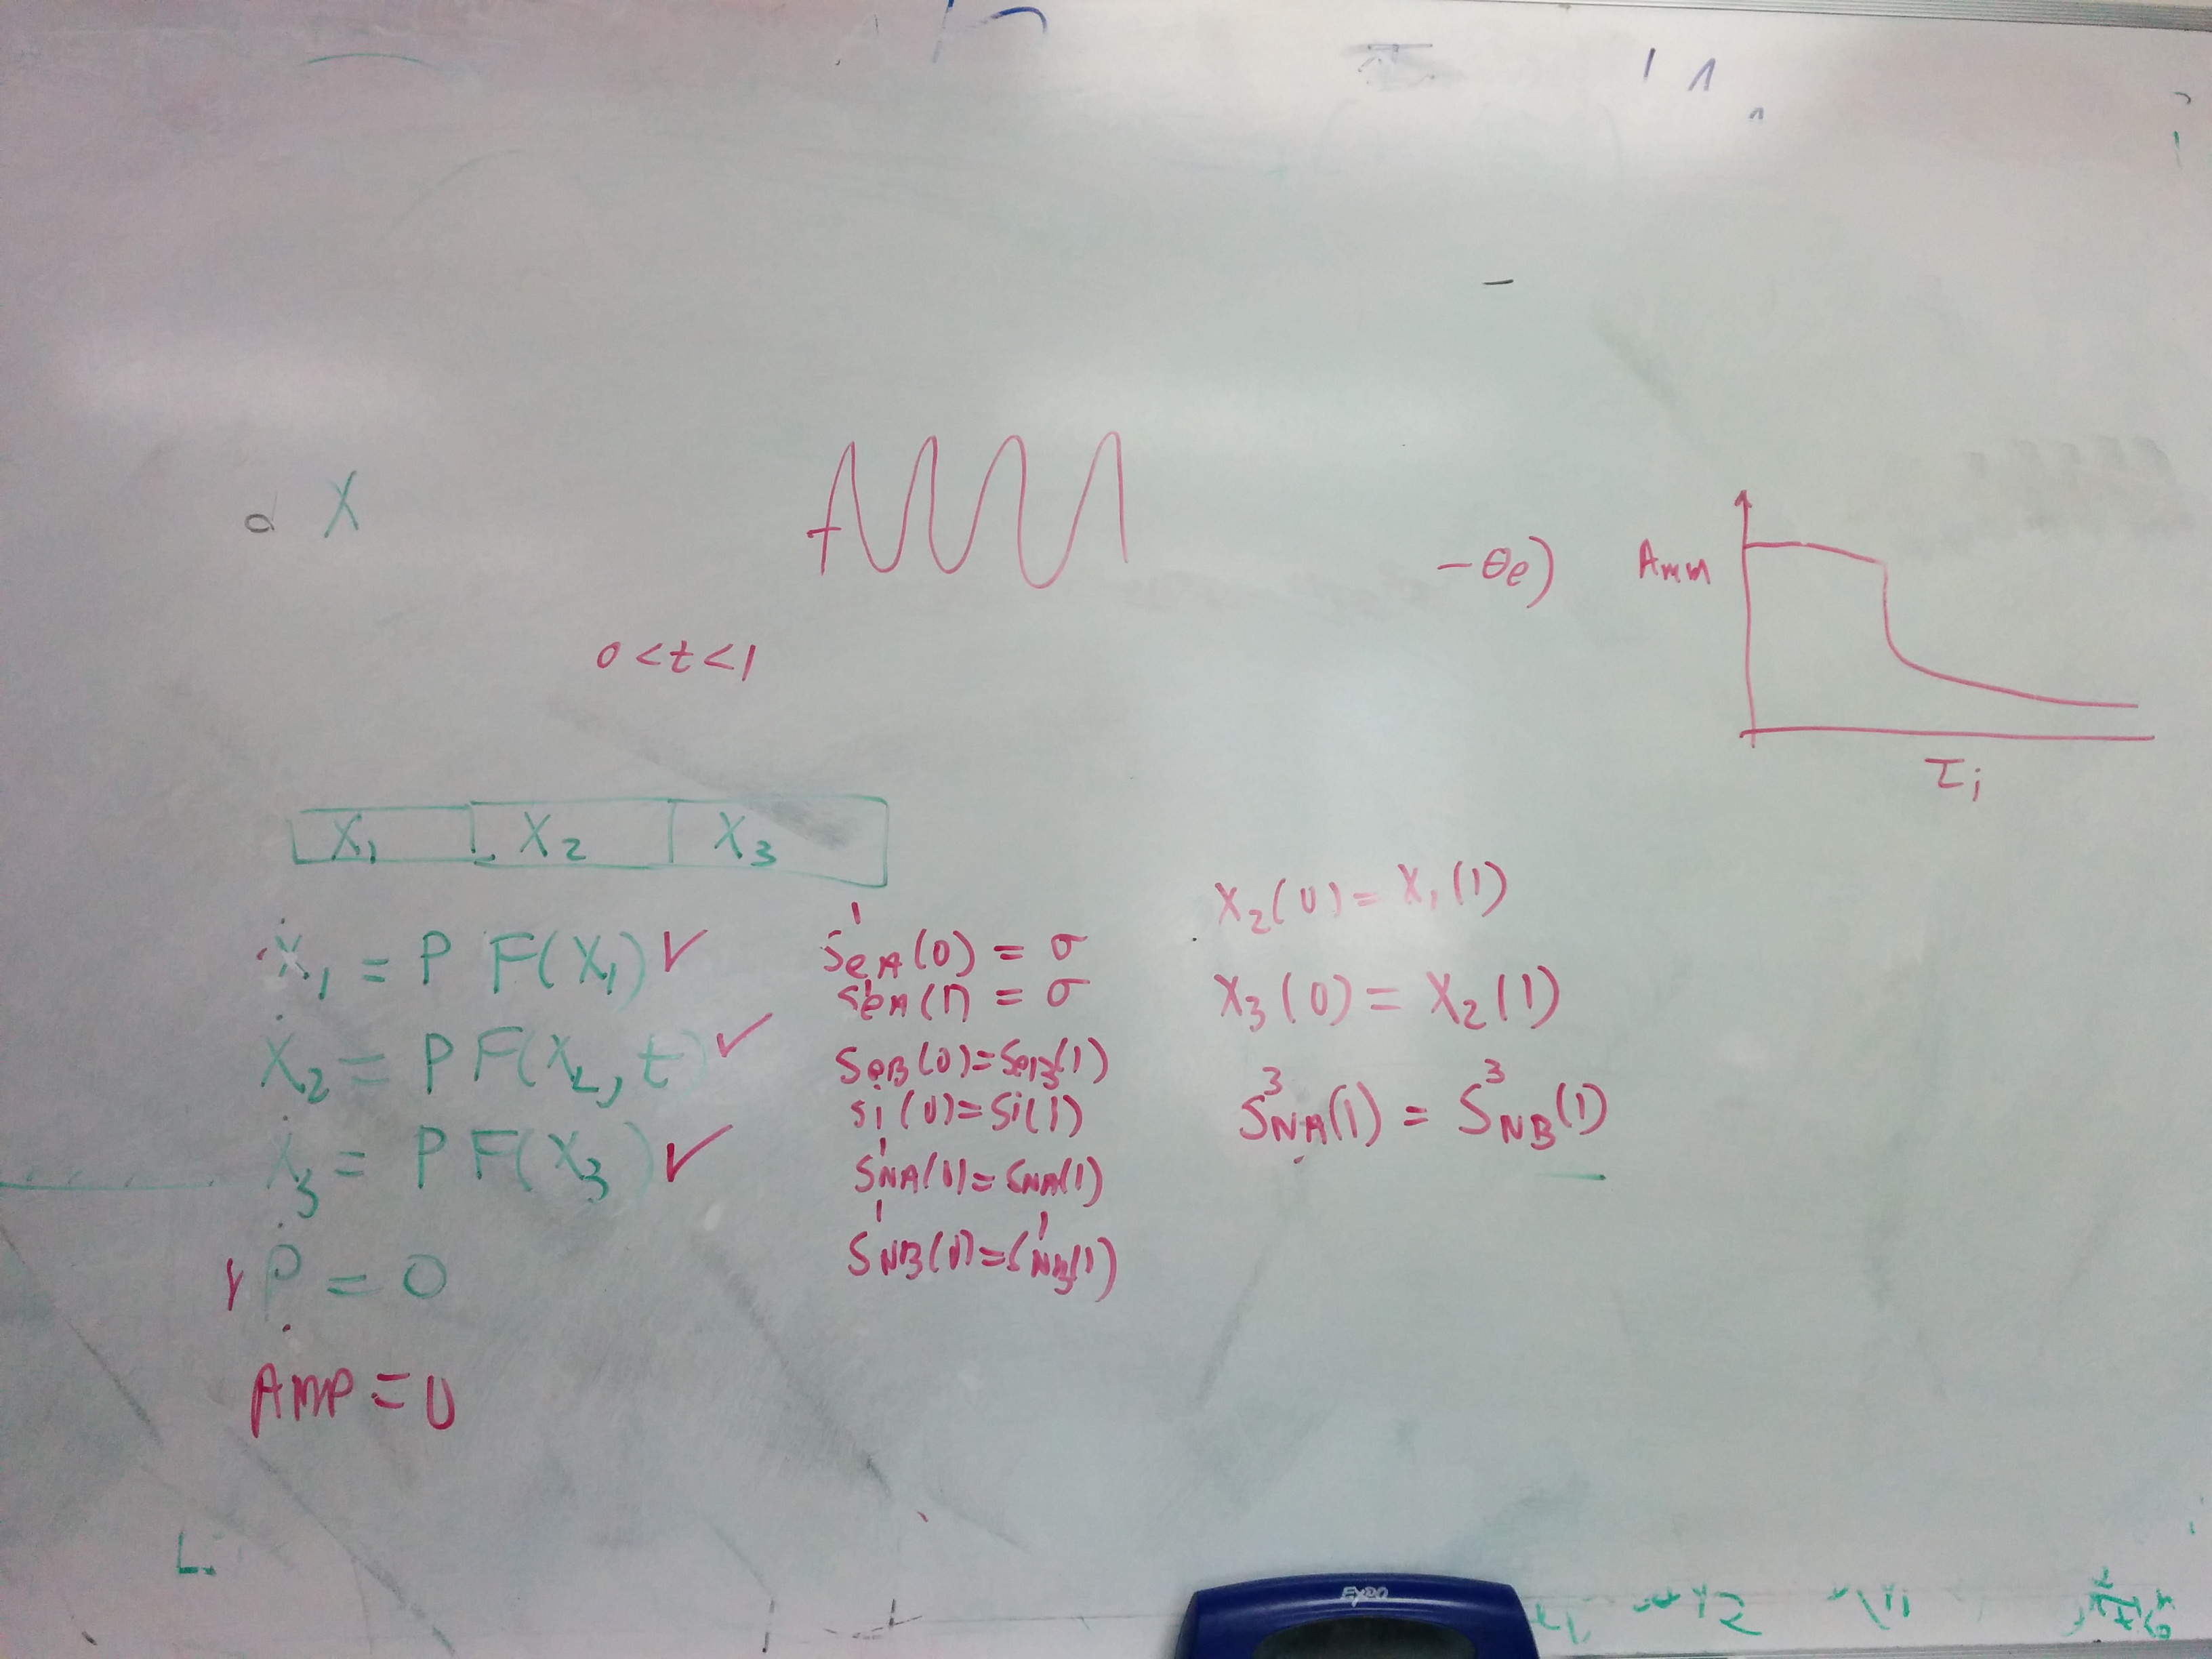 X
- θe)
Amm
0 < t < 1
τi
X1 X2 X3
Ẋ1 = P F(X1) ✓
Ẋ2 = P F(X2, t) ✓
Ẋ3 = P F(X3) ✓
Ṗ = 0
AṁP = 0
S¹eA(0) = σ
S¹eA(1) = σ
SeB(0) = SeB(1)
Si(0) = Si(1)
S¹NA(0) = SNA(1)
S¹NB(0) = S¹NB(1)
X2(0) = X1(1)
X3(0) = X2(1)
S³NA(1) = S³NB(1)
EXPO